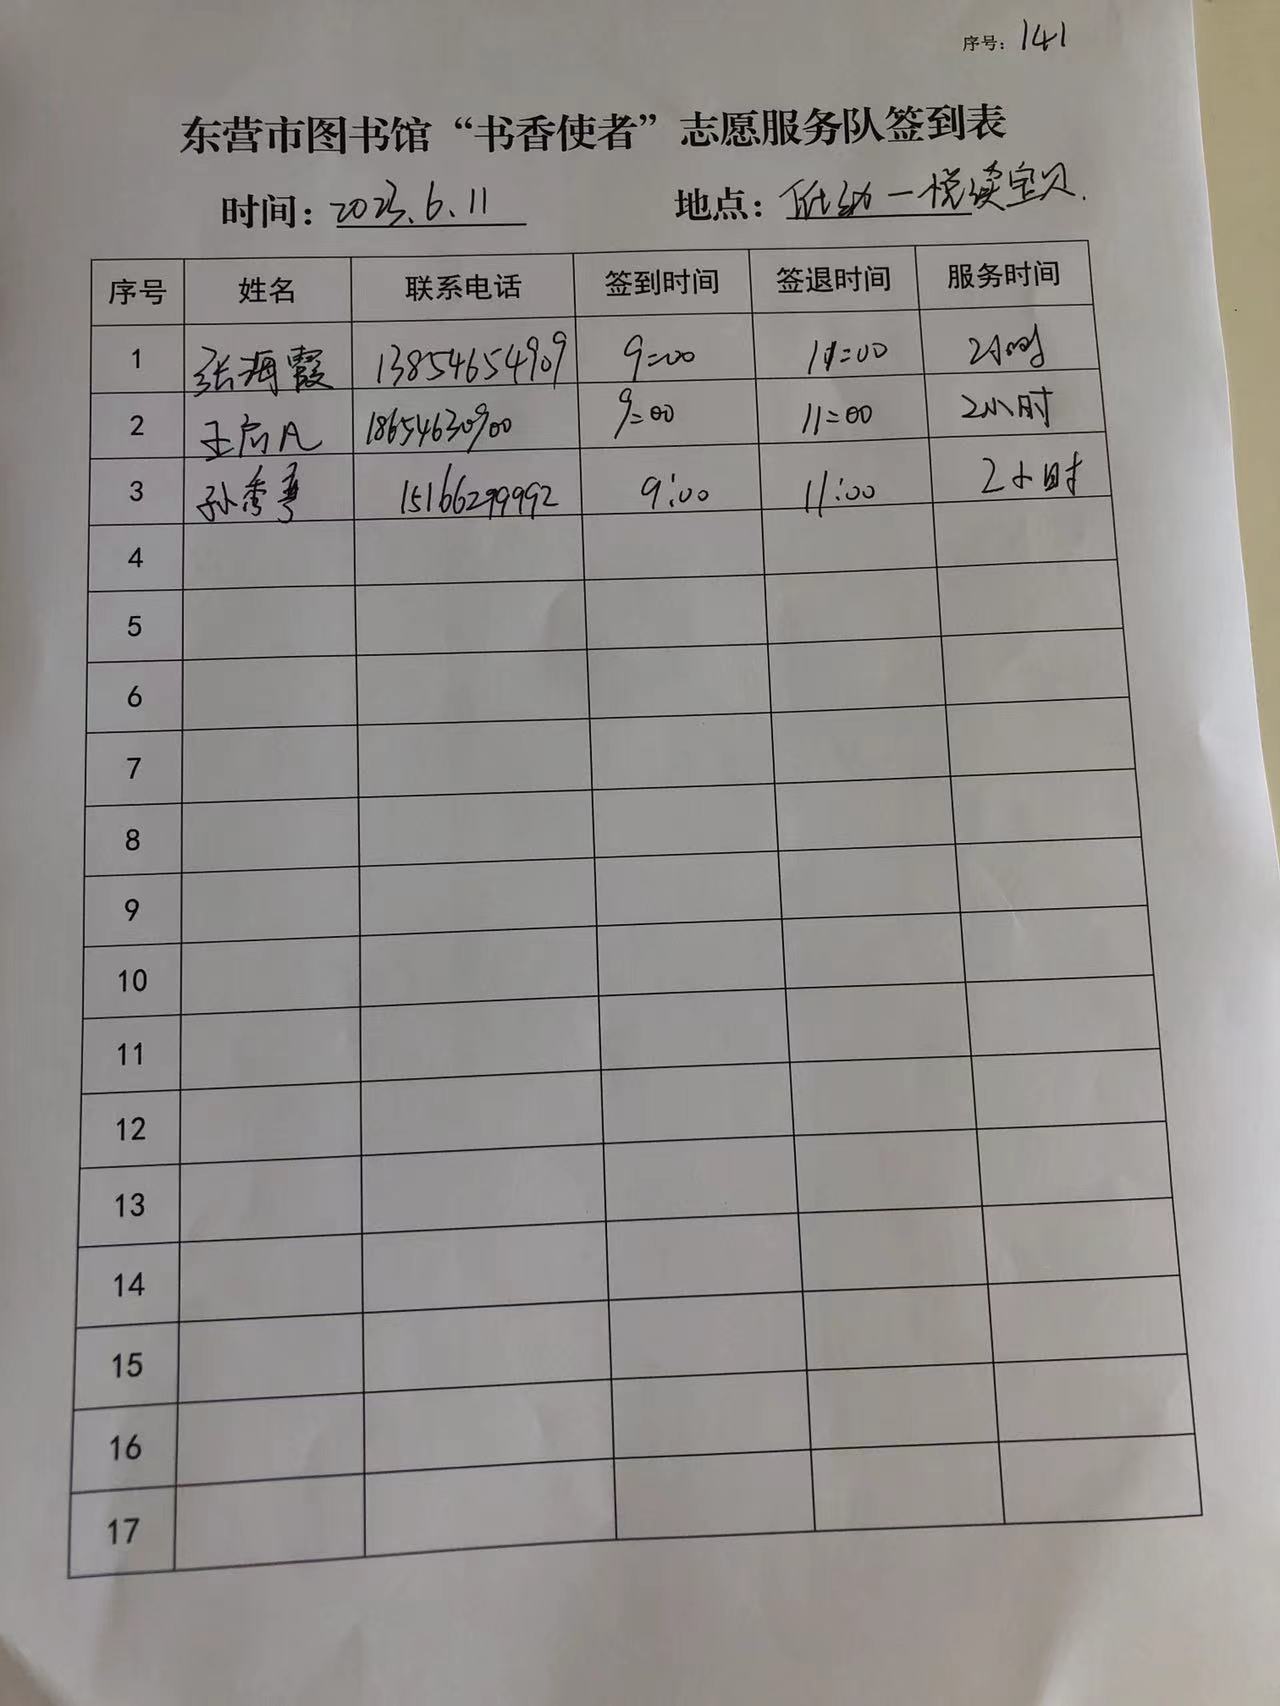 序号：141
东营市图书馆“书香使者”志愿服务队签到表
时间：2023.6.11 地点：一悦读宝贝.
序号 姓名 联系电话 签到时间 签退时间 服务时间
1 张海霞 13854654909 9:00 11:00 2小时
2 王 凡 18654630900 9:00 11:00 2小时
3 孙秀 15166299992 9:00 11:00 2小时
4
5
6
7
8
9
10
11
12
13
14
15
16
17